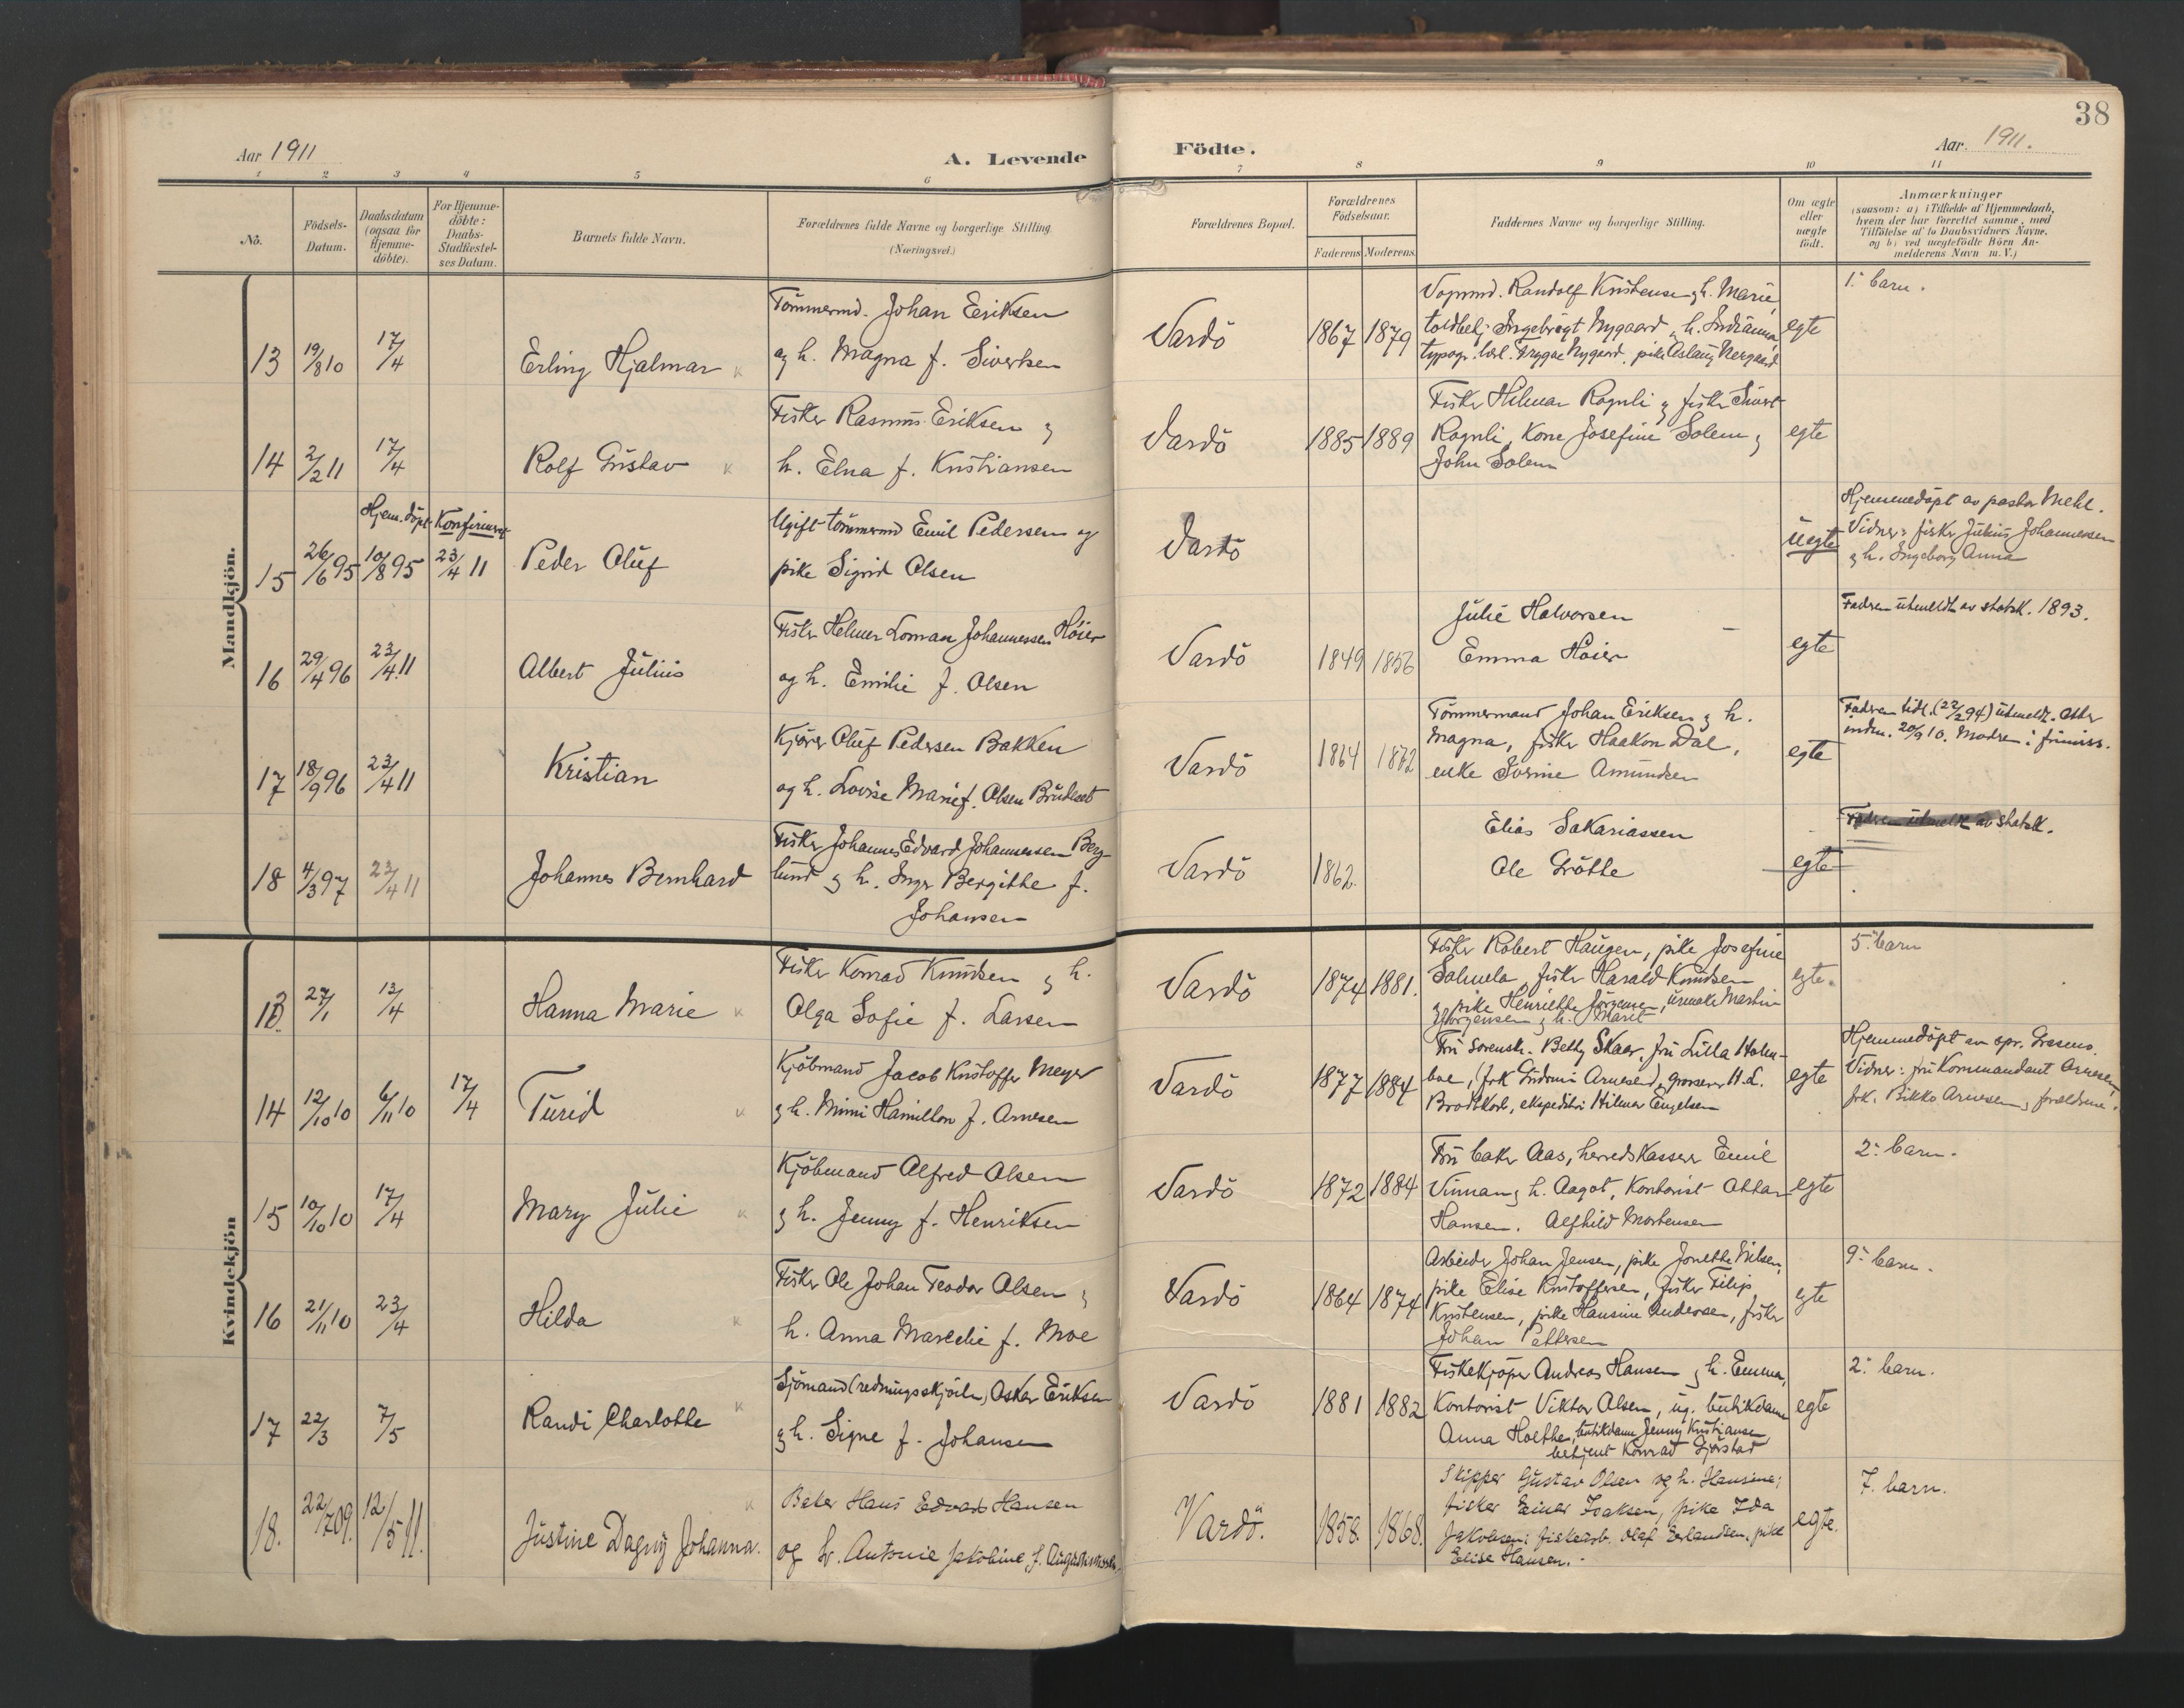 38
Aar 1911
A. Levende
Födte.
Aar. 1911.
1 2 3 4 5 6 7 8 9 10 11
No.
Födsels-
Datum.
Daabsdatum
(ogsaa for
Hjemme-
döbte).
For Hjemme-
döbte:
Daabs-
Stadfæstel-
ses Datum.
Barnets fulde Navn.
Forældrenes fulde Navne og borgerlige Stilling
(Næringsvei.)
Forældrenes Bopæl.
Forældrenes
Födselsaar.
Faderens Moderens
Faddernes Navne og borgerlige Stilling.
Om ægte
eller
uægte
födt.
Anmærkninger
(saasom: a) i Tilfælde af Hjemmedaab,
hvem der har forrettet samme, med
Tilföielse af to Daabsvidners Navne,
og b) ved uægtefödte Börn An-
melderens Navn m. V.)
Mandkjön.
13 19/8 10 17/4
Erling Hjalmar
Tömmermd. Johan Eriksen
og h. Magna f. Sivertsen
Vardö
1867 1879
Vognmd. Randolf Kristensen og h. Marie,
toldbetj. Ingebrigt Nygaard og h. Indianna,
typogr. lærl. Trygve Nygaard, pike Aslaug Nergaard
egte
1. barn.
14 2/2 11 17/4
Rolf Gustav
Fisker Rasmus Eriksen og
h. Elna f. Kristiansen
Vardö
1885 1889
Fisker Hilmar Rognli og fisker Sivert
Rognli, Kone Josefine Solem og
John Solem
egte
15 26/6 95
Hjem. döpt
10/8 95
Konfirmert
23/4 11
Peder Oluf
Ugift tömmermd Emil Pedersen og
pike Sigrid Olsen
Vardö
uegte
Hjemmedöpt av pastor Mehl.
Vidner: fisker Julius Johannessen
og h. Ingeborg Anna
16 29/4 96 23/4 11
Albert Julius
Fisker Helmer Loman Johannessen Höier
og h. Emilie f. Olsen
Vardö
1849 1856
Julie Halvorsen
Emma Höier
egte
Fadren utmeldt av statsk. 1893.
17 18/9 96 23/4 11
Kristian
Kjörer Oluf Pedersen Bakken
og h. Lovise Marie f. Olsen Brudeset
Vardö
1864 1872
Tömmermand Johan Eriksen og h.
Magna, fisker Haakon Dal,
enke Sorine Amundsen
egte
Fadren tidl. (22/2 94) utmeldt. Atter
indm. 20/9 10. Modren i frimiss.
18 4/3 97 23/4 11
Johannes Bernhard
Fisker Johannes Edvard Johannessen Berg-
lund og h. Inger Bergithe f.
Johansen
Vardö
1862.
Elias Sakariassen
Ole Gröthe
egte
Fadren utmeldt av statsk.
Kvindekjön
13. 27/1 12/4
Hanna Marie
Fisker Konrad Knudsen og h.
Olga Sofie f. Larsen
Vardö
1874 1881.
Fisker Robert Haugen, pike Josefine
Salmela, fisker Harald Knudsen
og pike Henriette Jörgensen, urmaker Martin
Jörgensen og h. Marit
egte.
5. barn
14 12/10 10 6/11 10 17/4
Turid
Kjöbmand Jacob Kristoffer Meyer
og h. Mimi Hamilton f. Arnesen
Vardö
1877 1884
Fru Sorenskr. Betty Skaar, fru Lilla Holm-
boe, frk Arnesen, grosserer H. L.
Brodtkorb, ekspeditör Hilmar Engelsen
egte
Hjemmedöpt av spr.
Vidner: fru Kommandant Arnesen,
frk. Bikko Arnesen og forældrene.
15 10/10 10 17/4
Mary Julie
Kjöbmand Alfred Olsen
og h. Jenny f. Henriksen
Vardö
1872 1884
Fru baker Aas, herredskasserer Emil
Vinnan og h. Aagot, Kontorist Ottar
Hansen. Alfhild Mortensen
egte
2. barn.
16 21/11 10 23/4
Hilda
Fisker Ole Johan Teodor Olsen og
h. Anna Marcelie f. Moe
Vardö
1864 1874
Arbeider Johan Jensen, pike Jonette Nilsen,
pike Elise Kristoffersen, fisker Filip
Kristensen, pike Hansine Andersen, fisker
Johan Pettersen
egte
9. barn.
17 22/3 7/5
Randi Charlotte
Sjömand (redningsskjöite) Oskar Eriksen
og h. Signe f. Johansen
Vardö
1881 1882
Fiskekjöper Andreas Hansen og h. Emma,
Kontorist Viktor Olsen, ug. butikdame
Anna Holthe, butikdame Jenny Kristiansen,
betjent Konrad Gjerstad
egte
2. barn.
18. 22/7 09. 12/5 11.
Justine Dagny Johanna.
Baker Hans Edvard Hansen
og h. Antonie Jakobine f. Augustinussen.
Vardö.
1858. 1868.
Skipper Gustav Olsen og h. Hansine;
fisker Einar Isaksen, pike Ida
Jakobsen; fiskearb. Olaf Erlandsen, pike
Elise Hansen.
egte.
7. barn.